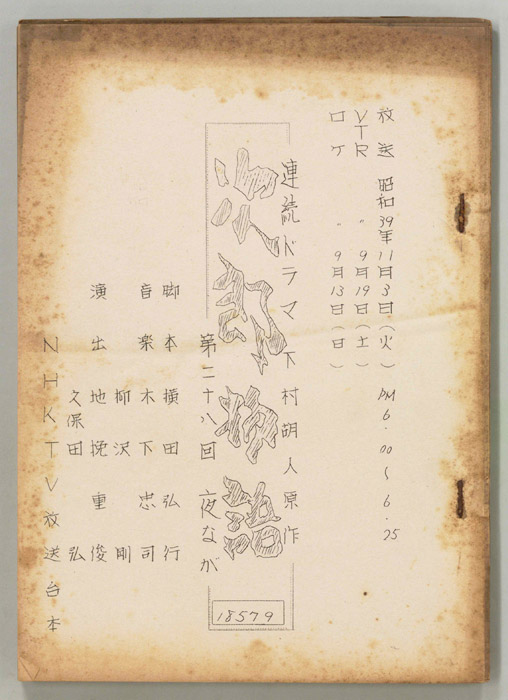 放送 昭和39年11月3日(火) PM 6.00〜6.25
VTR 〃 9月19日(土)
ロケ 〃 9月13日(日)
連続ドラマ 下村胡人原作
次郎物語
第二十八回 夜なが
脚本 横田弘行
音楽 木下忠司
柳沢 剛
演出 地挽重俊
久保田 弘
NHKTV放送台本
18579